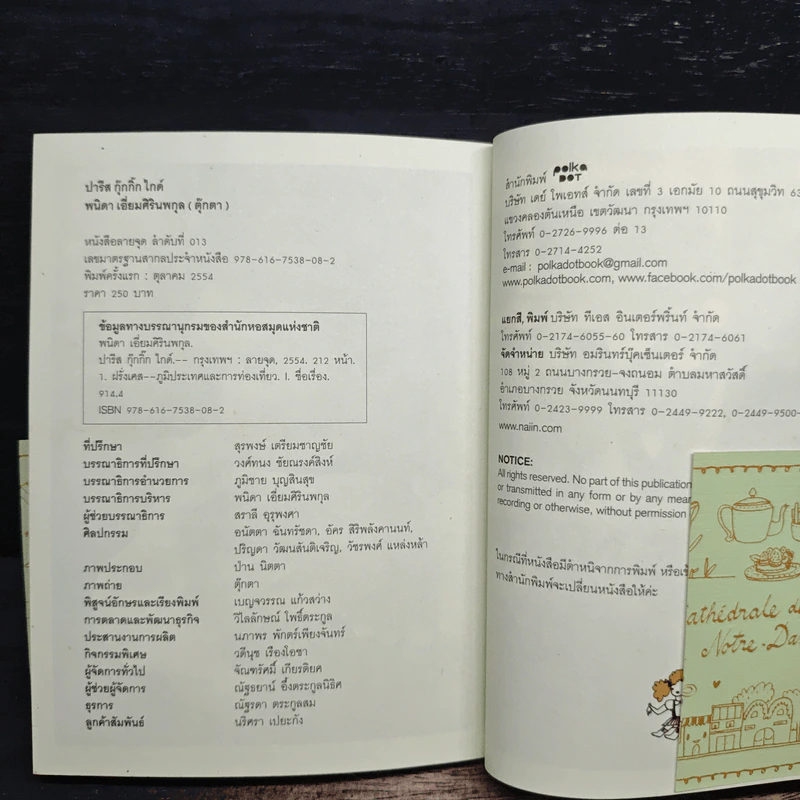 ปารีส กุ๊กกิ๊ก ไกด์
พนิดา เอี่ยมศิรินพกุล ( ตุ๊กตา )
หนังสือลายจุด ลำดับที่ 013
เลขมาตรฐานสากลประจำหนังสือ 978-616-7538-08-2
พิมพ์ครั้งแรก : ตุลาคม 2554
ราคา 250 บาท
ข้อมูลทางบรรณานุกรมของสำนักหอสมุดแห่งชาติ
พนิดา เอี่ยมศิรินพกุล.
ปารีส กุ๊กกิ๊ก ไกด์.-- กรุงเทพฯ : ลายจุด, 2554. 212 หน้า.
1. ฝรั่งเศส--ภูมิประเทศและการท่องเที่ยว. I. ชื่อเรื่อง.
914.4
ISBN 978-616-7538-08-2
ที่ปรึกษา สุรพงษ์ เตรียมชาญชัย
บรรณาธิการที่ปรึกษา วงศ์ทนง ชัยณรงค์สิงห์
บรรณาธิการอำนวยการ ภูมิชาย บุญสินสุข
บรรณาธิการบริหาร พนิดา เอี่ยมศิรินพกุล
ผู้ช่วยบรรณาธิการ สราลี อุรุพงศา
ศิลปกรรม อนัตตา ฉันทรัชตา, อัคร สิริพลังคานนท์,
ปริญดา วัฒนสันติเจริญ, วัชรพงศ์ แหล่งหล้า
ภาพประกอบ ป่าน นิตตา
ภาพถ่าย ตุ๊กตา
พิสูจน์อักษรและเรียงพิมพ์ เบญจวรรณ แก้วสว่าง
การตลาดและพัฒนาธุรกิจ วิไลลักษณ์ โพธิ์ตระกูล
ประสานงานการผลิต นภาพร พักตร์เพียงจันทร์
กิจกรรมพิเศษ วดีนุช เรืองโอชา
ผู้จัดการทั่วไป จัณฑรัศมิ์ เกียรติยศ
ผู้ช่วยผู้จัดการ ณัฐธยาน์ อึ้งตระกูลนิธิศ
ธุรการ ณัฐรดา ตระกูลสม
ลูกค้าสัมพันธ์ นริศรา เปยะกัง
สำนักพิมพ์ polka DOT
บริษัท เดย์ โพเอทส์ จำกัด เลขที่ 3 เอกมัย 10 ถนนสุขุมวิท 63
แขวงคลองตันเหนือ เขตวัฒนา กรุงเทพฯ 10110
โทรศัพท์ 0-2726-9996 ต่อ 13
โทรสาร 0-2714-4252
e-mail : polkadotbook@gmail.com
www.polkadotbook.com, www.facebook.com/polkadotbook
แยกสี, พิมพ์ บริษัท ทีเอส อินเตอร์พริ้นท์ จำกัด
โทรศัพท์ 0-2174-6055-60 โทรสาร 0-2174-6061
จัดจำหน่าย บริษัท อมรินทร์บุ๊คเซ็นเตอร์ จำกัด
108 หมู่ 2 ถนนบางกรวย-จงถนอม ตำบลมหาสวัสดิ์
อำเภอบางกรวย จังหวัดนนทบุรี 11130
โทรศัพท์ 0-2423-9999 โทรสาร 0-2449-9222, 0-2449-9500-
www.naiin.com
NOTICE:
All rights reserved. No part of this publication
or transmitted in any form or by any
recording or otherwise, without permission
ในกรณีที่หนังสือมีตำหนิจากการพิมพ์ หรือ
ทางสำนักพิมพ์จะเปลี่ยนหนังสือให้ค่ะ
Cathédrale
Notre-Da